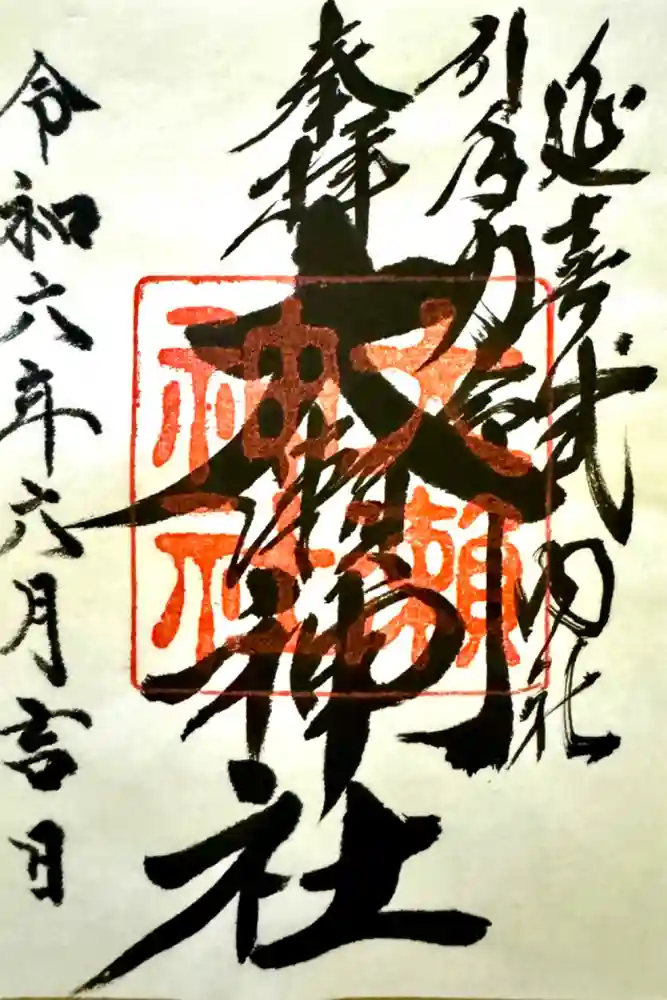 延喜式内社
引手力命
奉拝
大瀬神社
大瀬
神社
令和六年六月吉日